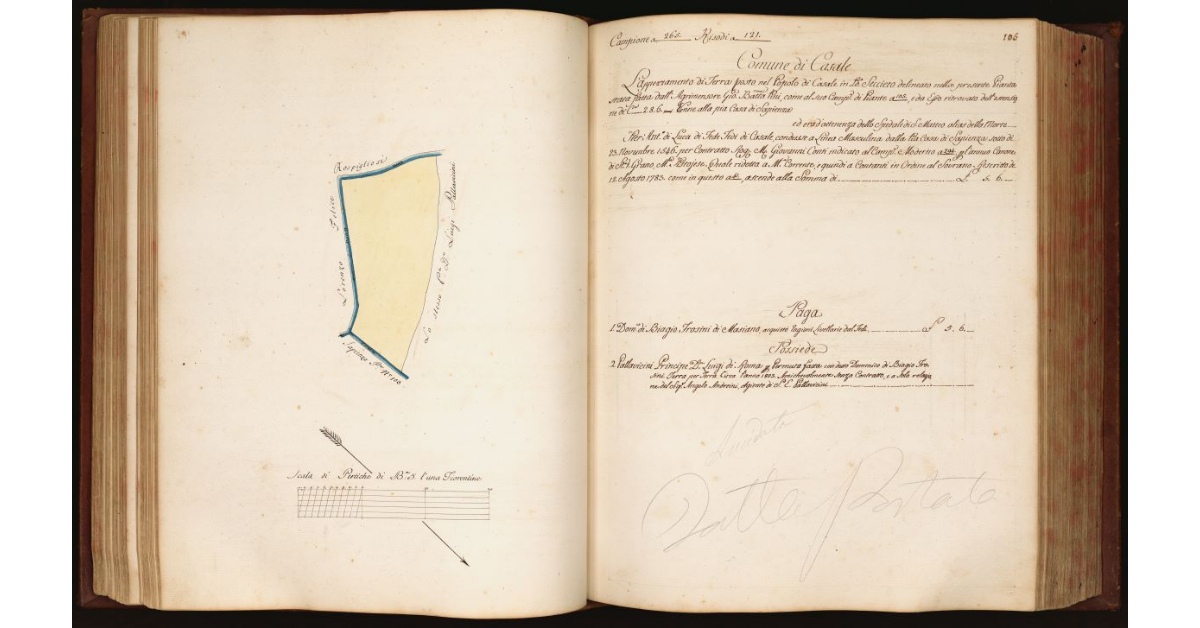 Rospigliosi
Lorenzo Felice
Lo stesso P. D. Luigi Pallavicini
Scala di Pertiche di B. 5 l'una Fiorentine
Campione a 260. Risiedi a 121.
105
Comune di Casale
L'Appezzamento di Terra posto nel Popolo di Casale in delineato nella presente Pianta
stata fatta dall'Agrimensore Gio. Batta come al suo Camp. di Piante a 105, e da Esso ritrovato dell'
ne di 286. Venne alla pia Casa di Sapienza
ed era di attenenza dello Spedale di S. Matteo alias dello Morte
Pier Ant. di Luca di Fede Fedi di Casale, condusse a Linea Masculina dalla Pia Casa di Sapienza sotto dì
23. Novembre 1546. per Contratto Rog. M. Giovanni Conti indicato al Camp. Moderno a l'annuo Canone
di St. 1. Grano, M. Pratese, Quale ridotta a M. Corrente, e quindi a Contanti in Ordine al Sovrano Rescritto de
12. Agosto 1783. come in questo a ascende alla Somma di L. 5. 6.
Paga
1. Dom. di Biagio Frosini di Masiano, acquistò ragioni Livellarie del Fedi L. 5. 6.
Possiede
2. Pallavicini Principe D. Luigi di Roma p Permuta fatta con detto Domenico di Biagio Fro-
sini Terra per Terra Circa l'anno 1803. Amichevolmente senza Contratto, e a sola relazio-
ne del Sig. Angelo Andreini, agente di S. E. Pallavicini
Fatta Portate